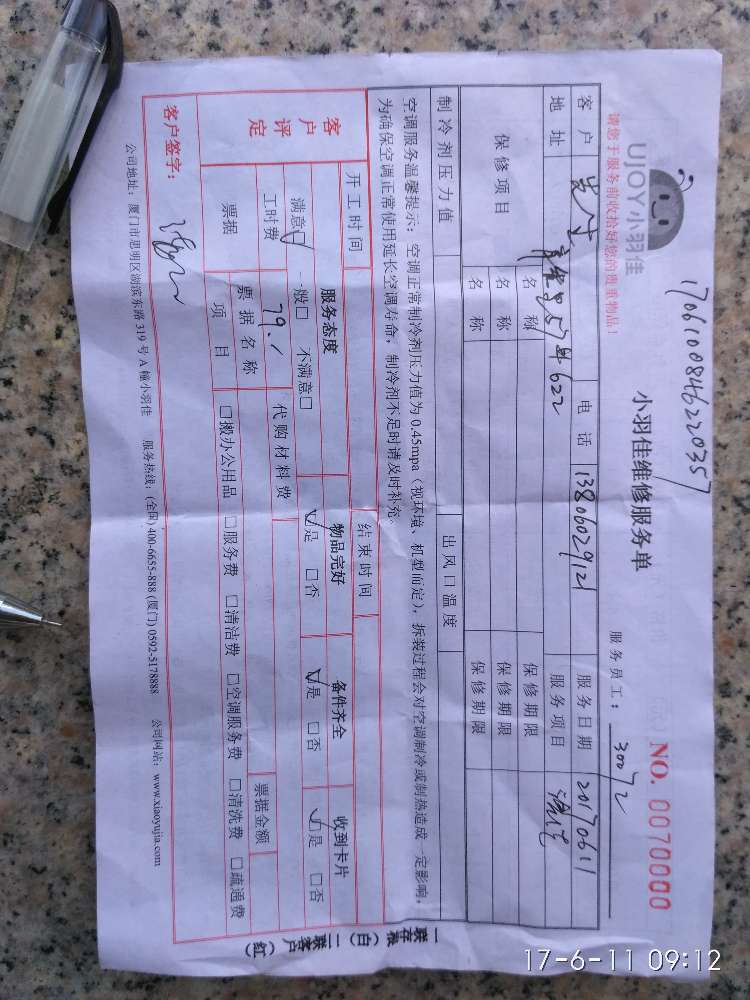 1706100846220357
UJOY小羽佳
小羽佳维修服务单
NO. 0070000
请您于服务前收拾好您的贵重物品！
服务员工：
30072
客户
电话
13806029121
服务日期
20170611
地址
57#622
服务项目
清洗
保修项目
名称
保修期限
名称
保修期限
名称
保修期限
制冷剂压力值
出风口温度
空调服务温馨提示：空调正常制冷剂压力值为0.45mpa（视环境、机型而定），拆装过程会对空调制冷或制热造成一定影响，
为确保空调正常使用延长空调寿命，制冷剂不足时请及时补充。
开工时间
结束时间
客户评定
服务态度
物品完好
备件齐全
收到卡片
满意☑ 一般□ 不满意□
☑是 □否
☑是 □否
☑是 □否
工时费
79.1
代购材料费
票据金额
票据
票据名称
项目
□搬办公用品 □服务费 □清洁费 □空调服务费 □清洗费 □疏通费
客户签字：
公司地址：厦门市思明区湖滨东路319号A幢小羽佳 服务热线：(全国) 400-6655-888 (厦门) 0592-5178888 公司网站：www.xiaoyujia.com
一联存根（白）二联客户（红）
17-6-11 09:12